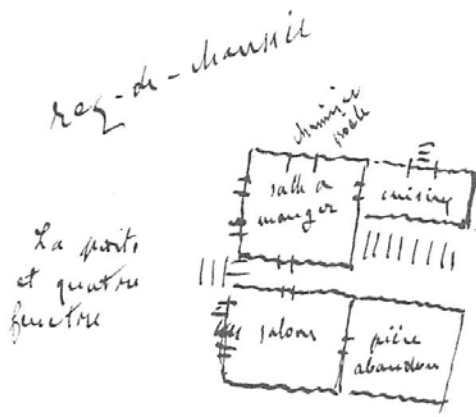 rez-de-chaussée
cheminée
poële
salle a
manger
cuisine
La porte
et quatre
fenetre
salon
pièce
abandon